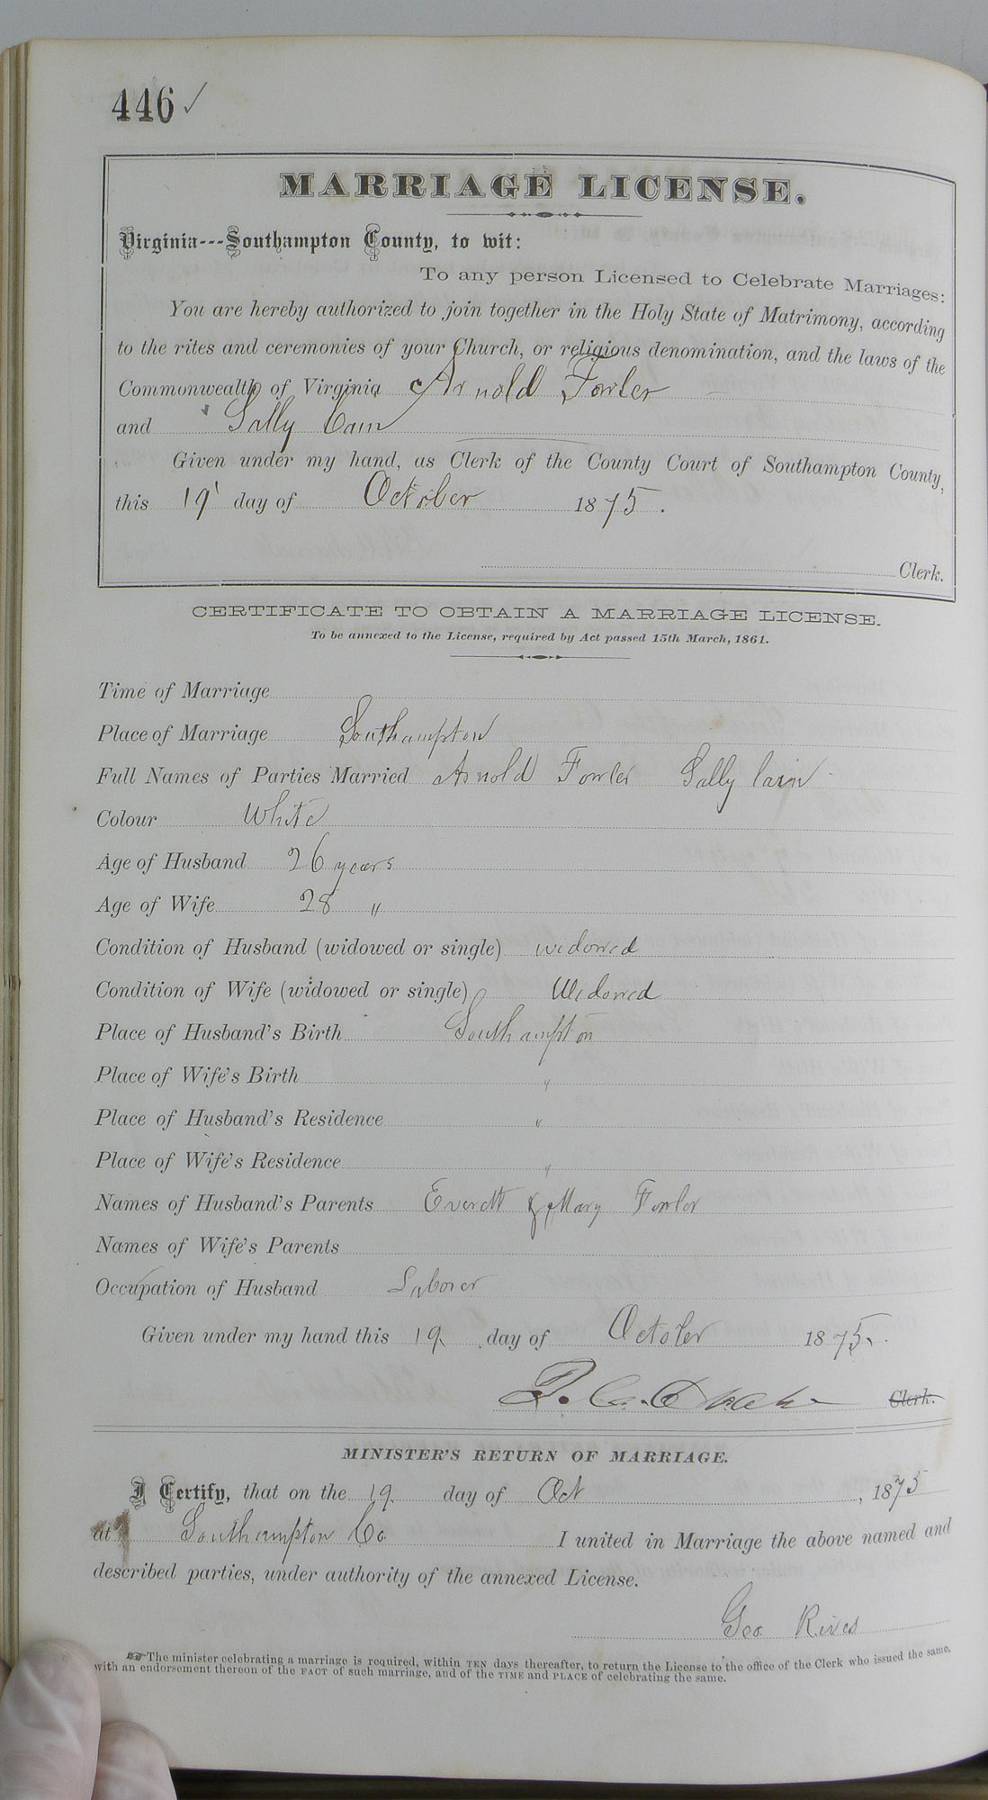 446 ✓
MARRIAGE LICENSE.
Virginia---Southampton County, to wit:
To any person Licensed to Celebrate Marriages:
You are hereby authorized to join together in the Holy State of Matrimony, according
to the rites and ceremonies of your Church, or religious denomination, and the laws of the
Commonwealth of Virginia Arnold Fowler
and Sally Cain
Given under my hand, as Clerk of the County Court of Southampton County,
this 19 day of October 1875.
Clerk.
CERTIFICATE TO OBTAIN A MARRIAGE LICENSE.
To be annexed to the License, required by Act passed 15th March, 1861.
Time of Marriage
Place of Marriage Southampton
Full Names of Parties Married Arnold Fowler Sally Cain
Colour White
Age of Husband 26 years
Age of Wife 28 "
Condition of Husband (widowed or single) widowed
Condition of Wife (widowed or single) Widowed
Place of Husband's Birth Southampton
Place of Wife's Birth "
Place of Husband's Residence "
Place of Wife's Residence "
Names of Husband's Parents Everett & Mary Fowler
Names of Wife's Parents
Occupation of Husband Laborer
Given under my hand this 19 day of October 1875.
Clerk.
MINISTER'S RETURN OF MARRIAGE.
I Certify, that on the 19 day of Oct, 1875
at Southampton Co I united in Marriage the above named and
described parties, under authority of the annexed License.
Geo Rives
☞The minister celebrating a marriage is required, within TEN days thereafter, to return the License to the office of the Clerk who issued the same,
with an endorsement thereon of the FACT of such marriage, and of the TIME and PLACE of celebrating the same.